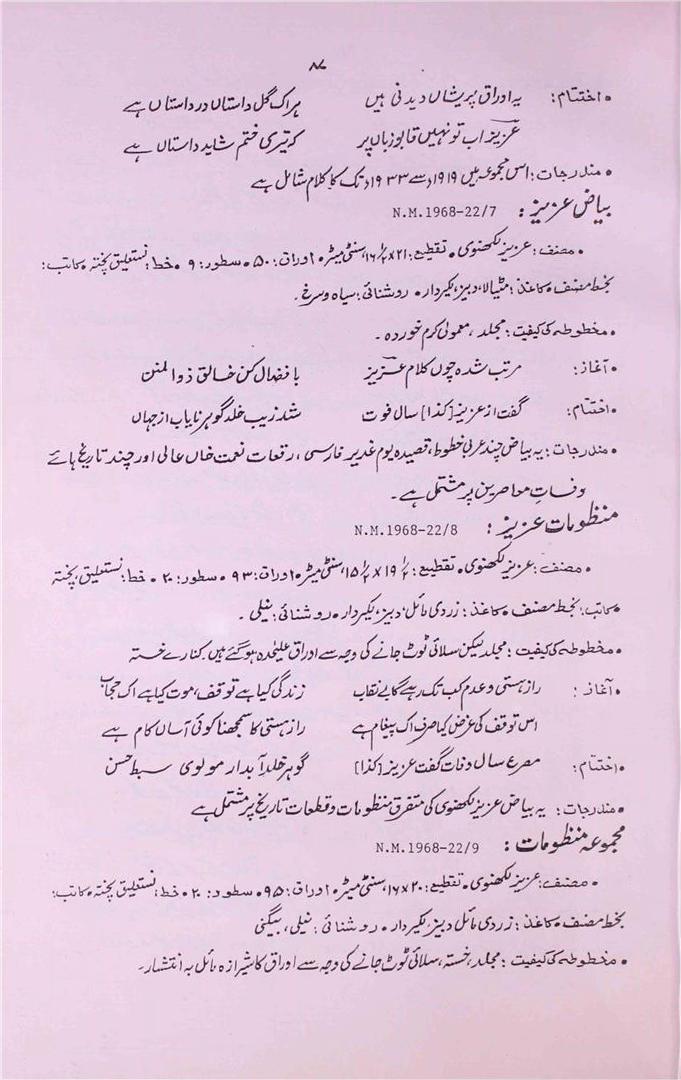 ۸۷
• اختتام: یہ اوراق پریشاں دیدنی ہیں ہر اک گل داستاں در داستاں ہے
عزیز اب تو نہیں قابو زباں پر کہ تیری ختم شاید داستاں ہے
• مندرجات: اس مجموعہ میں ۱۹۱۹ء سے ۱۹۳۳ء تک کا کلام شامل ہے
بیاض عزیز: N.M.1968-22/7
• مصنف: عزیز لکھنوی • تقطیع: ۲۱×۱۶۱/۲ سنٹی میٹر • اوراق: ۵۰ • سطور: ۹ • خط: نستعلیق پختہ • کاتب:
بخط مصنف • کاغذ: مٹیالا، دبیز، لکیردار • روشنائی: سیاہ و سرخ۔
• مخطوطہ کی کیفیت: مجلد، معمولی کرم خوردہ۔
• آغاز: مرتب شدہ چوں کلام عزیز با فضال کن خالق ذوالمنن
• اختتام: گفت از عزیز [کذا] سال فوت شد زیب خلد گوہر نایاب از جہاں
• مندرجات: یہ بیاض چند عربی خطوط، قصیدہ یوم غدیر فارسی، رقعات نعمت خاں عالی اور چند تاریخ ہائے
وفات معاصرین پر مشتمل ہے۔
منظومات عزیز: N.M.1968-22/8
• مصنف: عزیز لکھنوی • تقطیع: ۱۹۱/۲×۱۵۱/۲ سنٹی میٹر • اوراق: ۹۳ • سطور: ۲۰ • خط: نستعلیق، پختہ
• کاتب: بخط مصنف • کاغذ: زردی مائل، دبیز، لکیردار • روشنائی: نیلی۔
• مخطوطہ کی کیفیت: مجلد لیکن سلائی ٹوٹ جانے کی وجہ سے اوراق علیٰحدہ ہو گئے ہیں۔ کنارے خستہ
• آغاز: راز ہستی و عدم کب تک رہے گا بے نقاب زندگی کیا ہے توقف، موت کیا ہے اک حجاب
اس توقف کی غرض کیا صرف اک پیغام ہے راز ہستی کا سمجھنا کوئی آساں کام ہے
• اختتام: مصرع سال وفات گفت عزیز [کذا] گوہر خلد آبدار مولوی سبط حسن
• مندرجات: یہ بیاض عزیز لکھنوی کی متفرق منظومات و قطعات تاریخ پر مشتمل ہے
مجموعہ منظومات: N.M.1968-22/9
• مصنف: عزیز لکھنوی • تقطیع: ۲۰×۱۶، سنٹی میٹر • اوراق: ۹۵ • سطور: ۲۰ • خط: نستعلیق پختہ • کاتب:
بخط مصنف • کاغذ: زردی مائل دبیز، لکیردار • روشنائی: نیلی، بیگنی
• مخطوطہ کی کیفیت: مجلد، خستہ، سلائی ٹوٹ جانے کی وجہ سے اوراق کا شیرازہ مائل بہ انتشار۔